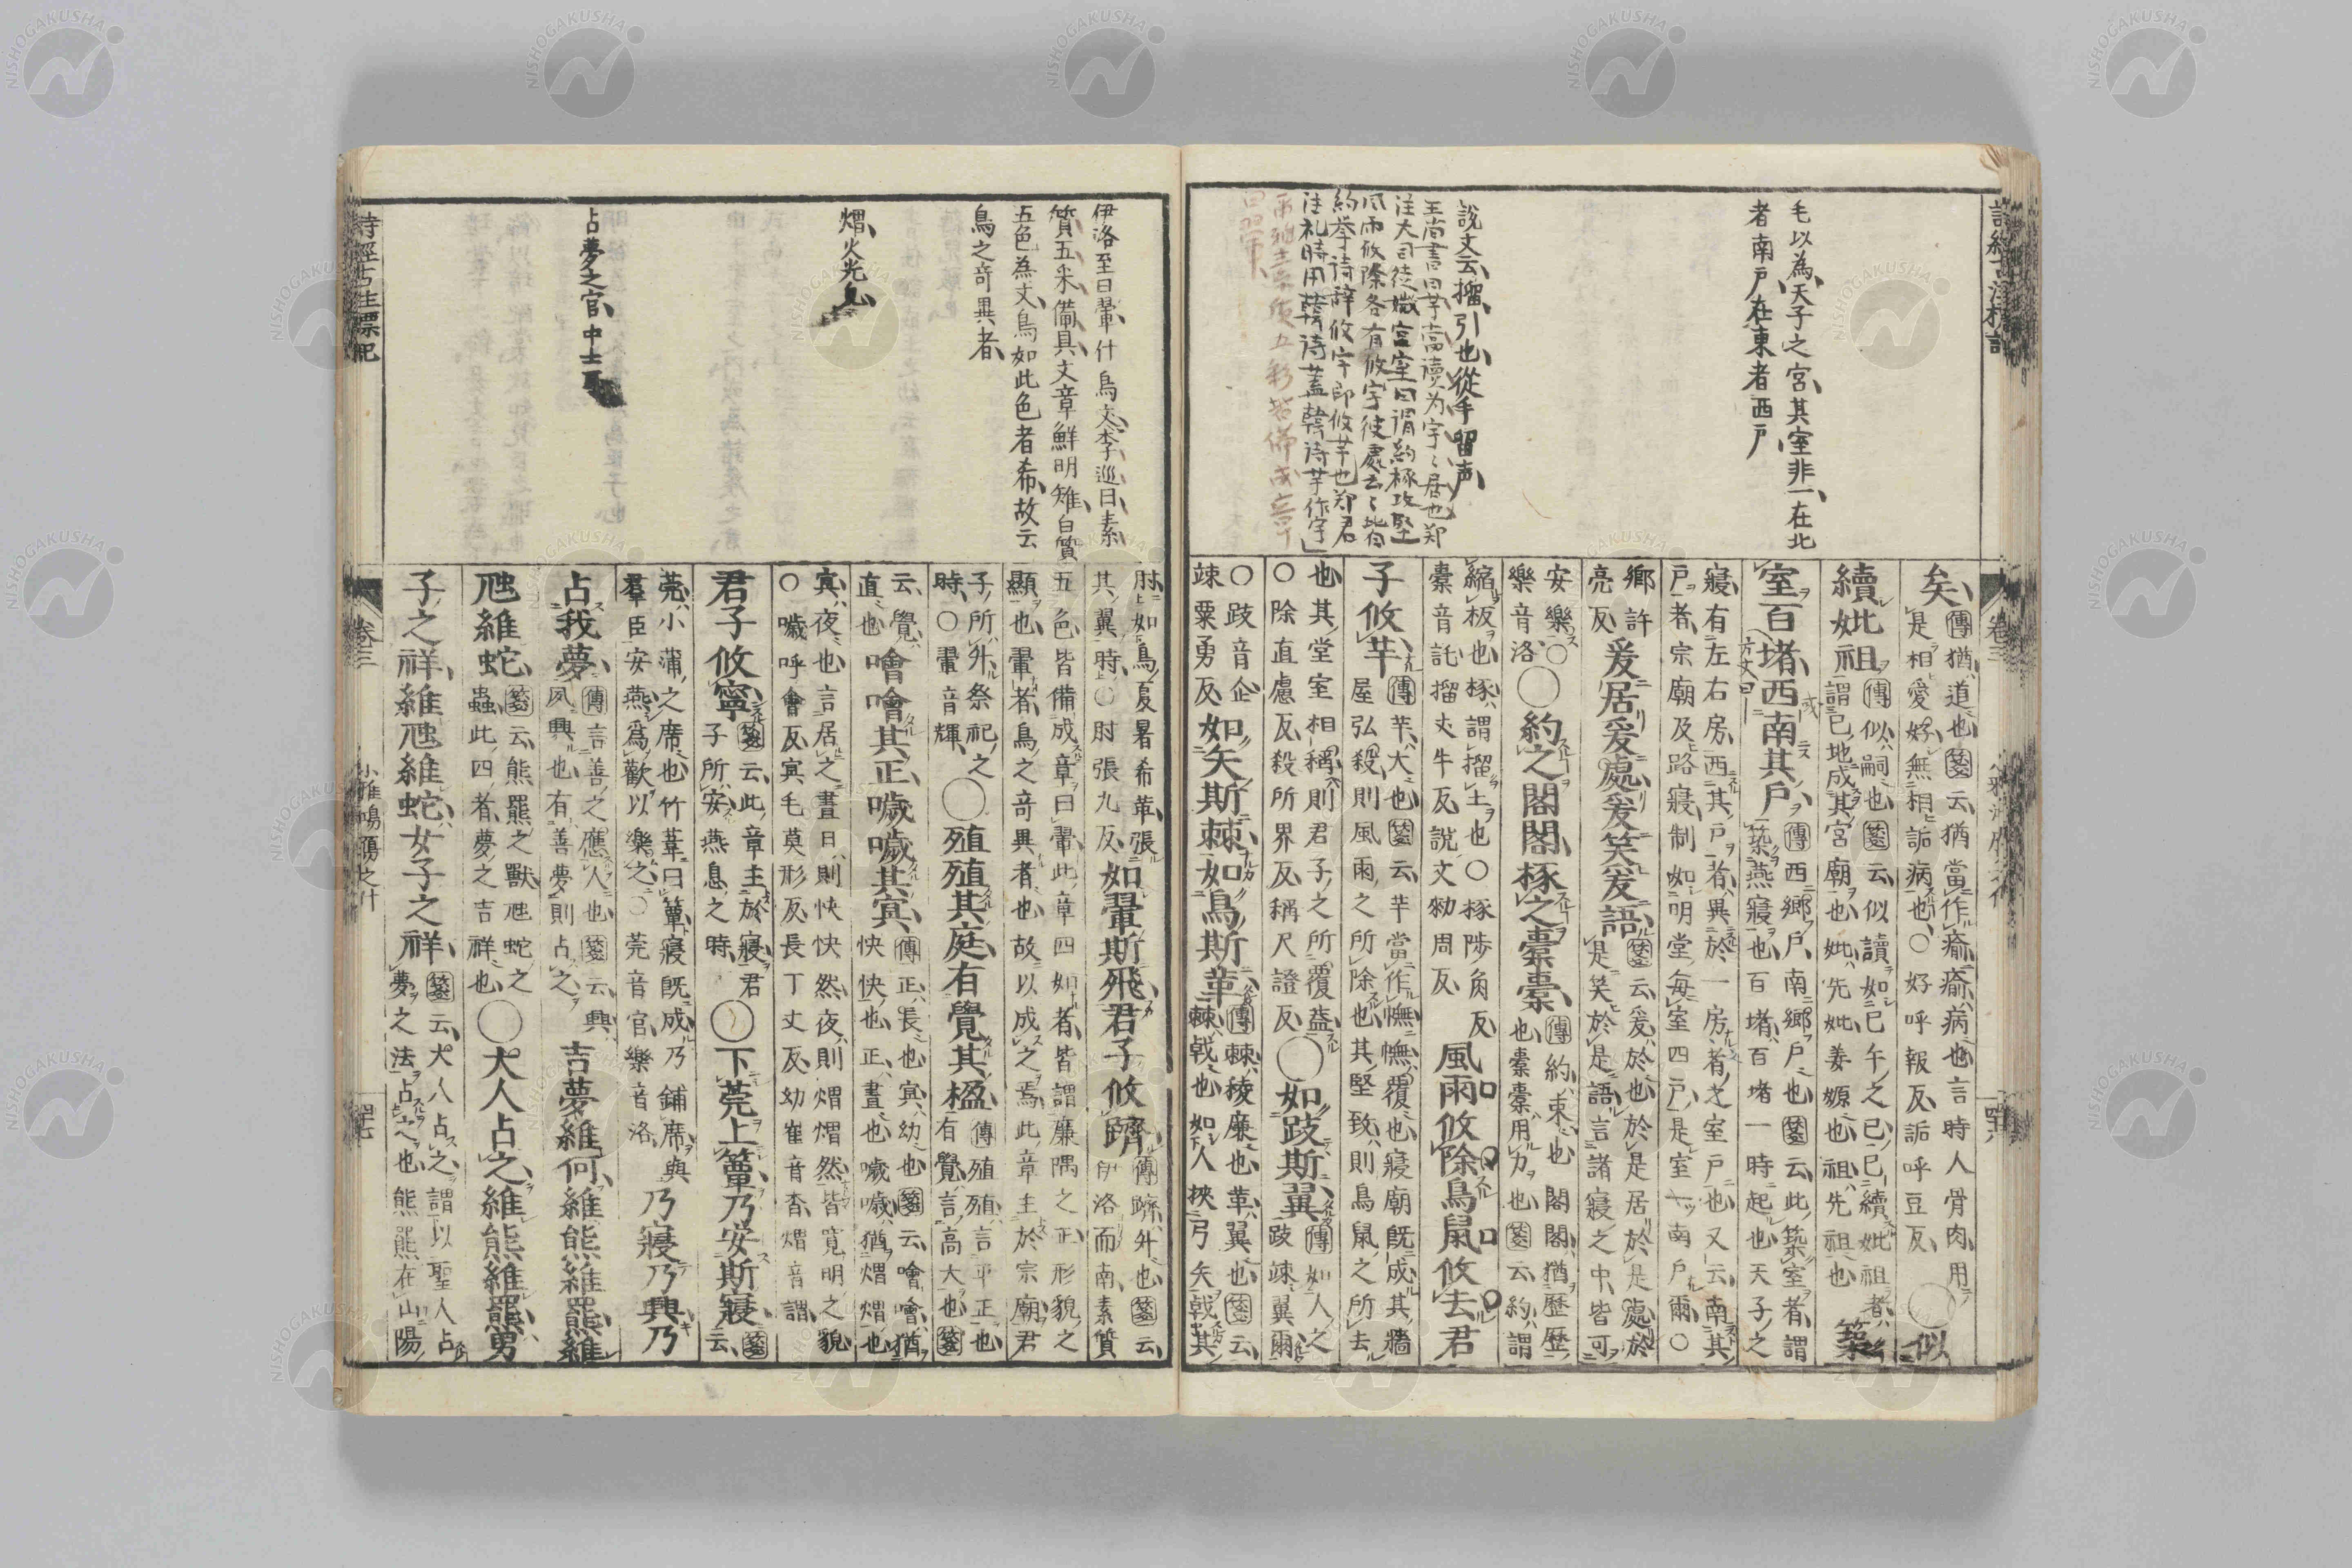 毛以為天子之宮其室非一在北
者南戸在東者西戸
説文云摺引也從手留声
王尚書曰芋當讀为宇〻居也郑
注大司徒媺宮室曰謂約椓攻堅
風雨攸除各有攸宇彼處云〻皆有
約挙诗辞攸宇即攸芋也郑君
注礼時用韓诗蓋韓诗芋作宇
矣傳猶道也箋云猶當作瘉瘉病也言時人骨肉用
是相愛好無相詬病也○好呼報反詬呼豆反○似
續妣祖傳似嗣也箋云似讀如巳午之巳巳續妣祖者
謂已地成其宮廟也妣先妣姜嫄也祖先祖也築
室百堵西南其戸傳西郷戸南郷戸也箋云此築室者謂
築燕寢也百堵百堵一時起也天子之
寢有左右房西其戸者異於一房者之室戸也又云南其
戸者宗廟及路寢制如明堂毎室四戸是室一南戸爾○
郷許
亮反爰居爰處爰笑爰語箋云爰於也於是居於是處於
是笑於是語言諸寢之中皆可
安樂○
樂音洛○約之閣閣椓之橐橐傳約束也閣閣猶歴歴
也橐橐用力也箋云約謂
縮板也椓謂摺土也○椓陟角反
橐音託摺夫牛反説文勑周反風雨攸除鳥鼠攸去君
子攸芋傳芋大也箋云芋當作幠幠覆也寢廟既成其牆
屋弘殺則風雨之所除也其堅致則鳥鼠之所去
也其堂室相稱則君子之所覆葢
○除直慮反殺所界反稱尺證反○如跂斯翼傳如人之
跂竦翼爾
○跂音企
竦粟勇反如矢斯棘如鳥斯革傳棘稜廉也革翼也箋云
棘戟也如人挾弓矢戟其
伊洛至曰翬什鳥文李巡曰素
質五采備具文章鮮明雉白質
五色為文鳥如此色者希故云
鳥之奇異者
熠火光皃
占夢之官中士
肘如鳥夏暑希革張
其翼時○肘張九反如翬斯飛君子攸躋傳躋升也箋云
伊洛而南素質
五色皆備成章曰翬此章四如者皆謂廉隅之正形貌之
顯也翬者鳥之奇異者也故以成之焉此章主於宗廟君
子所升祭祀之
時○翬音輝○殖殖其庭有覺其楹傳殖殖言平正也
有覺言高大也箋
云覺
直也噲噲其正噦噦其冥傳正長也冥幼也箋云噲噲猶
快快也正晝也噦噦猶熠熠也
冥夜也言居之晝日則快快然夜則熠熠然皆寛明之貌
○噦呼會反冥毛莫形反長丁丈反幼崔音杳熠音謂
君子攸寧箋云此章主於寢君
子所安燕息之時○下莞上簟乃安斯寢箋云
莞小蒲之席也竹葦曰簟寢既成乃鋪席與
羣臣安燕爲歡以樂之○莞音官樂音洛乃寢乃興乃
占我夢傳言善之應人也箋云興
夙興也有善夢則占之吉夢維何維熊維羆維
虺維蛇箋云熊羆之獸虺蛇之
蟲此四者夢之吉祥也○大人占之維熊維羆男
子之祥維虺維蛇女子之祥箋云大人占之謂以聖人占
夢之法占之也熊羆在山陽
詩經古註標記
卷三
小雅鴻鴈之什